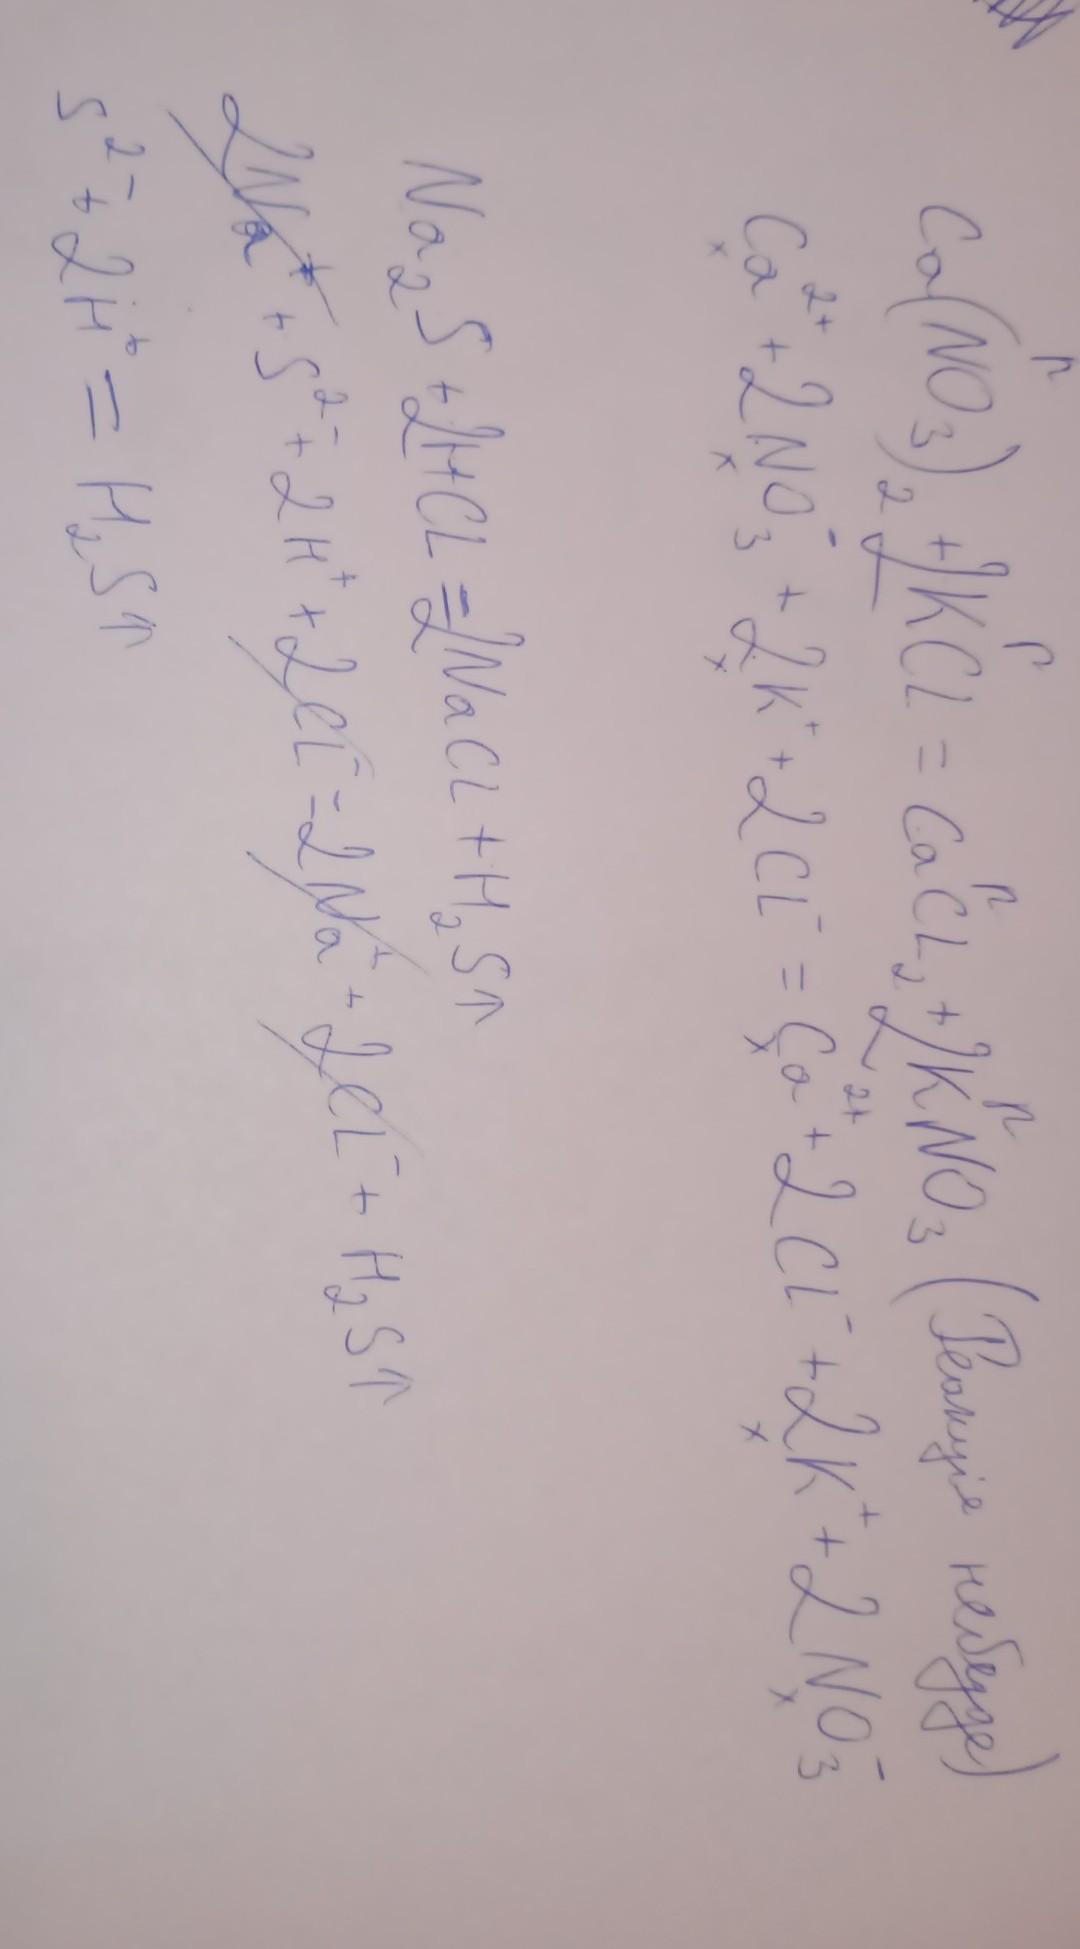 р р р р
Ca(NO₃)₂ + 2KCl = CaCl₂ + 2KNO₃ (Реакція небуде)
Ca²⁺ + 2NO₃⁻ + 2K⁺ + 2Cl⁻ = Ca²⁺ + 2Cl⁻ + 2K⁺ + 2NO₃⁻
x x x x x x
Na₂S + 2HCl = 2NaCl + H₂S↑
2Na⁺ + S²⁻ + 2H⁺ + 2Cl⁻ = 2Na⁺ + 2Cl⁻ + H₂S↑
S²⁻ + 2H⁺ = H₂S↑